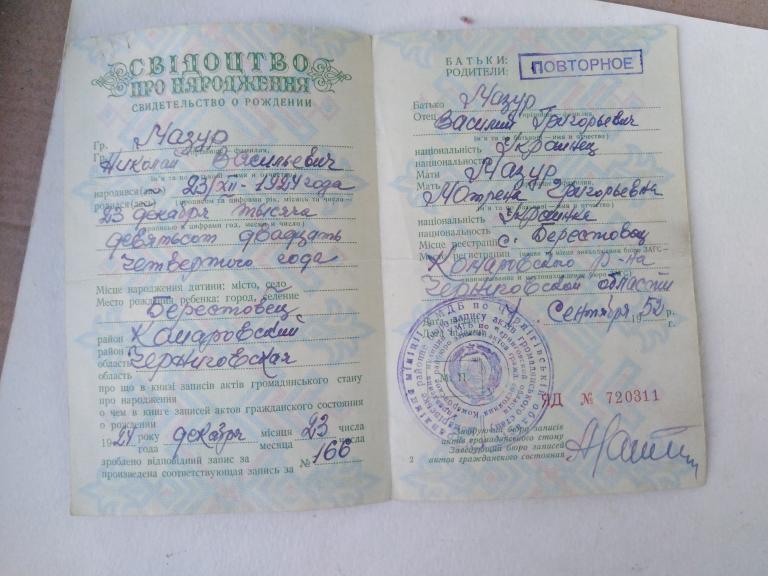 СВІДОЦТВО
ПРО НАРОДЖЕННЯ
СВИДЕТЕЛЬСТВО О РОЖДЕНИИ
Гр. Мазур
Гр.
Николай Васильевич
народився(лась) 23/XII - 1924 года
родился(лась)
23 декабря тысяча
девятьсот двадцать
четвертого года
Місце народження дитини: місто, село
Место рождения ребенка: город, селение
Берестовец
район Комаровский
район
область Черниговская
область
про що в книзі записів актів громадянського стану
про народження
о чем в книге записей актов гражданского состояния
о рождении
1924 року декабря місяця 23 числа
года месяца числа
зроблено відповідний запис за № 166
произведена соответствующая запись за
БАТЬКИ:
РОДИТЕЛИ:
ПОВТОРНОЕ
Батько Мазур
Отец Василий Григорьевич
національність Украинец
национальность
Мати Мазур
Мать Мотрена Григорьевна
національність Украинка
национальность
Місце реєстрації с. Берестовец
Место регистрации
Комаровского р-на
Черниговской области
сентября 1952 р.
г.
М. П.
ЯД № 720311
Завідуючий бюро записів
актів громадянского стану
Заведующий бюро записей
актов гражданского состояния
2